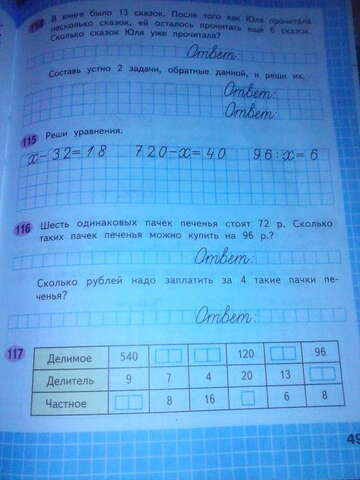 114 В книге было 13 сказок. После того как Юля прочитала
несколько сказок, ей осталось прочитать ещё 6 сказок.
Сколько сказок Юля уже прочитала?
Ответ:
Составь устно 2 задачи, обратные данной, и реши их.
Ответ:
Ответ:
115 Реши уравнения.
x-32=18 720-x=40 96:x=6
116 Шесть одинаковых пачек печенья стоят 72 р. Сколько
таких пачек печенья можно купить на 96 р.?
Ответ:
Сколько рублей надо заплатить за 4 такие пачки пе-
ченья?
Ответ:
117
Делимое 540 120 96
Делитель 9 7 4 20 13
Частное 8 16 6 8
49